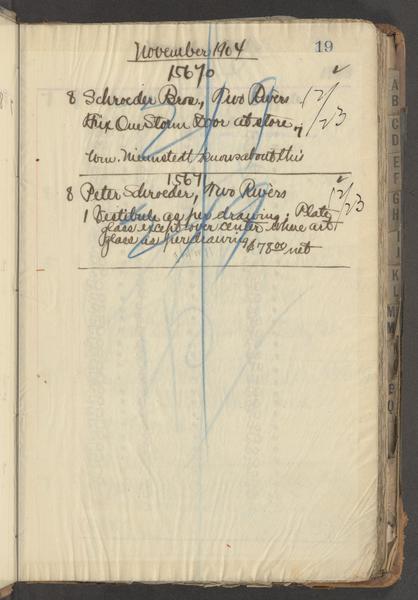 November 1904
19
15670
8 Schroeder Bros., Two Rivers
Fix One Storm Door at store,
12/23
Wm. Niemstedt knows about this
1567
8 Peter Schroeder, Two Rivers
12/23
1 Vestibule as per drawing; Plate
glass except over center where art
glass as per drawing $78.00 net
A
B
C
D
E
F
G
H
I
J
K
L
M